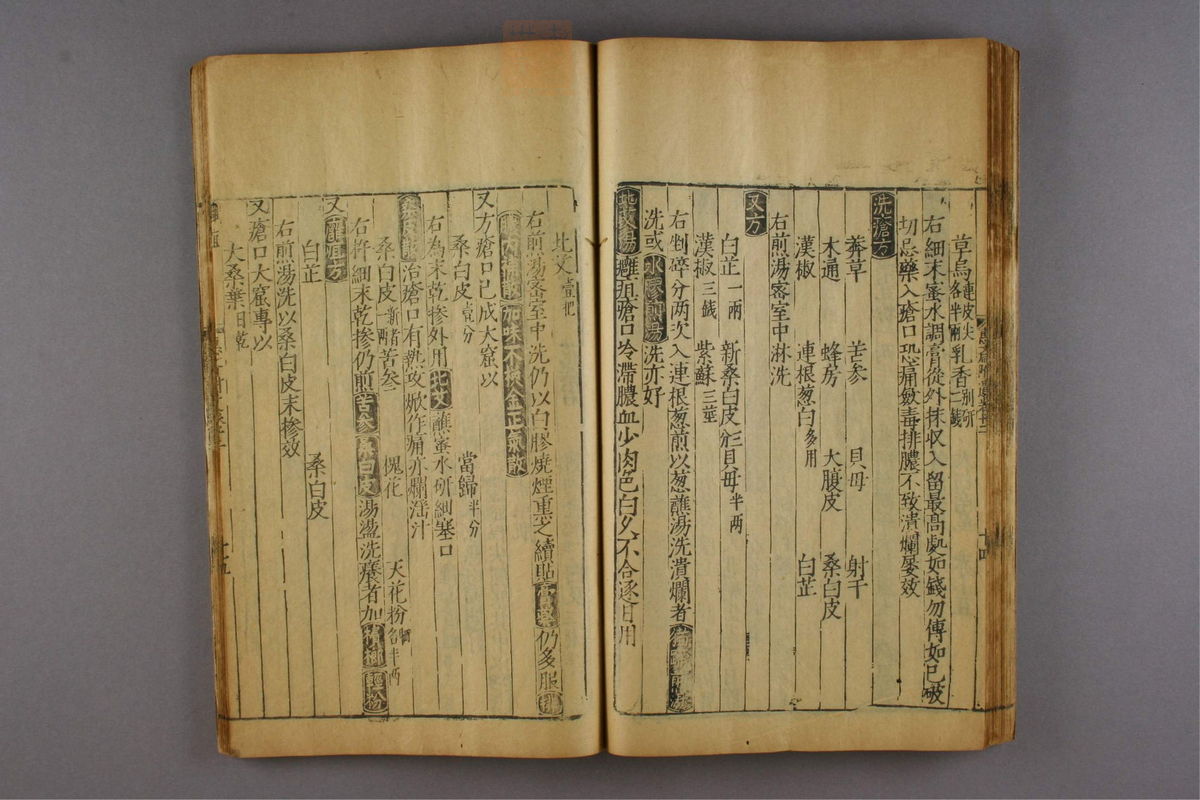 草烏連皮尖各半兩 乳香別研二錢
右細末蜜水調膏從外抹収入留最高處如錢勿傅如已破
切忌藥入瘡口恐痛斂毒排膿不致潰爛屡效
洗瘡方
莽草 苦参 貝母 射干
木通 蜂房 大腹皮 桑白皮
漢椒 連根葱白多用 白芷
右煎湯密室中淋洗
又方
白芷一兩 新桑白皮 貝母半两
漢椒三錢 紫蘇三莖
右剉碎分两次入連根葱煎以葱蘸湯洗潰爛者
洗或 洗亦好
北艾湯 癰疽瘡口冷滯膿血少肉色白久不合逐日用
北艾壹把
右煎湯密室中洗仍以白膠燒煙熏之續貼膏藥仍多服
加味不換金正氣散
又方瘡口已成大窟以
桑白皮 當歸半分
右為末乾摻外用北艾蘸蜜水研細塞口
治瘡口有熱攻焮作痛亦爛湆汁
桑白皮 苦参 槐花 天花粉各半两
右杵細末乾摻仍煎苦參桑白皮湯盪洗癢者加檳榔輕粉
又癰疽方
白芷 桑白皮
右煎湯洗以桑白皮末摻效
又瘡口大窟專以
大桑葉日乾
十四
十五